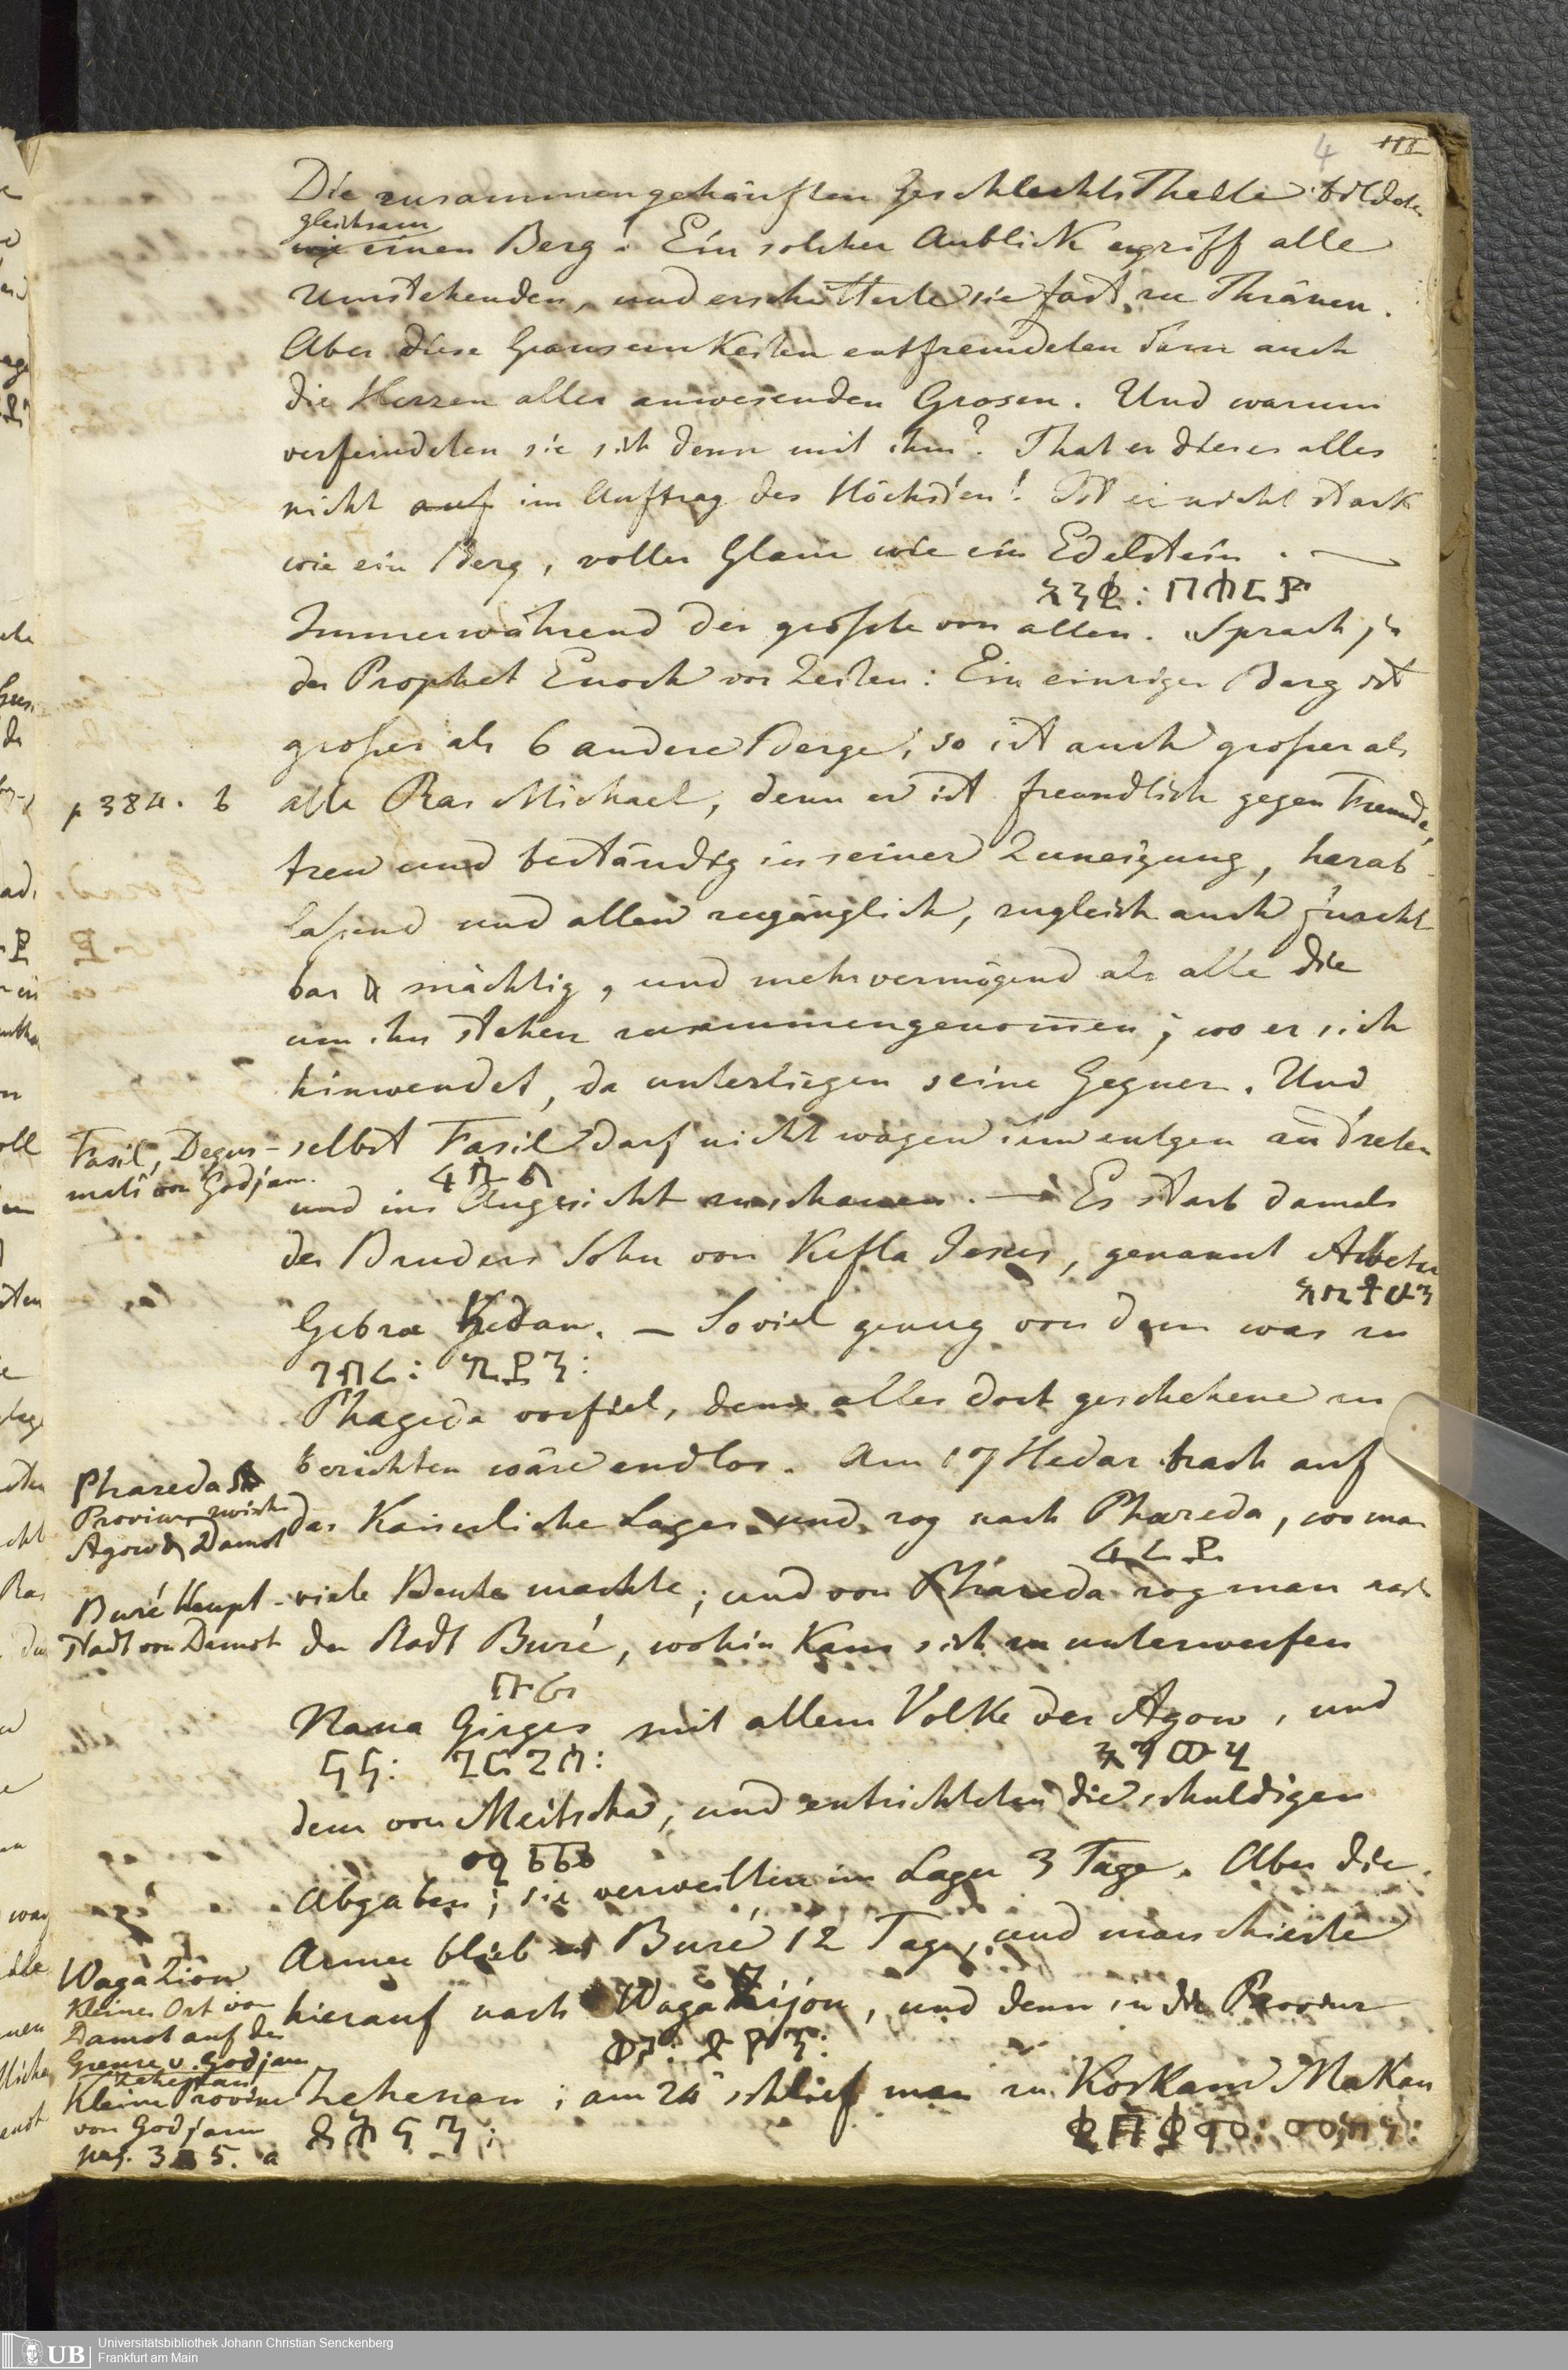 4 III
Die zusammengehäuften Geschlechts Theile bildeten
gleichsam
wie einen Berg. Ein solcher Anblick ergriff alle
Umstehenden, und erschütterte sie fast zu Thränen.
Aber diese Grausamkeiten entfremdeten dann auch
die Herzen aller anwesenden Grosen. Und warum
verfeindeten sie sich denn mit ihm? That er dieses alles
nicht auf im Auftrag des Höchsten! Ist er nicht stark
wie ein Berg, voller Glanz wie ein Edelstein. —
ዕንቁ: ባሕርይ
Immerwährend der größte von allen. Sprach ja
der Prophet Enoch vor Zeiten: Ein einziger Berg ist
großer als 6 andere Berge; so ist auch großer als
p 384. b alle Ras Michael, denn er ist freundlich gegen Fremde,
treu und beständig in seiner Zuneigung, herab-
laßend und allen zugänglich, zugleich auch furcht
bar & mächtig, und mehr vermögend als alle die
um ihn stehen zusammengenomen; wo er sich
hinwendet, da unterliegen seine Gegner. Und
Fasil, Degus- selbst Fasil darf nicht wagen ihm entgen zu treten
mati von Godjam.
ፋሲል
und ins Angesicht zuschauen. — Es starb damals
des Bruders Sohn von Kefla Jesus, genannt
Gebra Kedan. — Soviel genug von dem was zu
ገብረ: ኪዳን:
Phageda vorfiel, denn alles dort geschehene zu
berichten wäre endlos. Am 17 Hedar brach auf
Phareda
Provinz zwisch
Agow & Damot das Kaiserliche Lager und zog nach Phareda, wo man
ፋረዳ
Buré Haupt- viele Beute machte; und von Phareda zog man nach
stadt von Damot der Stadt Buré, wohin kam sich zu unterwerfen
ቡሬ
Nana Girges mit allem Volke der Agow, und
ናና: ጊርጊስ: አገው
dem von Meitscha, und entrichteten die schuldigen
Abgaben; sie verweilten im Lager 3 Tage. Aber die
Armee blieb in Buré 12 Tage, und marschierte
Waga Zion
Kleiner Ort von
Damot auf der
Grenze v. Godjam
hierauf nach Waga Zijon, und denn in die Provinz
ዋጋ: ጽዮን:
Zehenan
Kleine Provinz
von Godjam
pag. 385. a
Zehenan; am 24 schlief man zu Koskam Makan
ጽሕናን:
ቍስቋም: መካን:
Universitätsbibliothek Johann Christian Senckenberg
Frankfurt am Main
UB